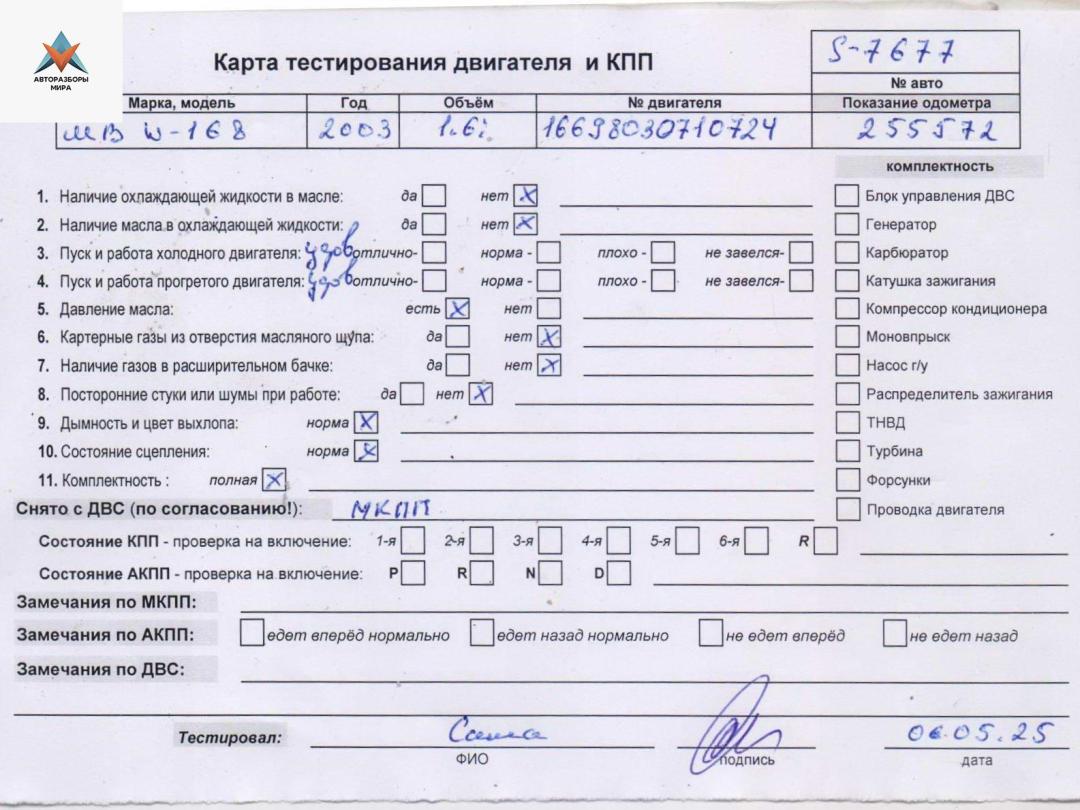 АВТОРАЗБОРЫ
МИРА
Карта тестирования двигателя и КПП
S-7677
№ авто
Марка, модель Год Объём № двигателя Показание одометра
МВ W-168 2003 1.6i 16698030710724 255572
комплектность
1. Наличие охлаждающей жидкости в масле: да нет X Блок управления ДВС
2. Наличие масла в охлаждающей жидкости: да нет X Генератор
3. Пуск и работа холодного двигателя: удов отлично- норма - плохо - не завелся- Карбюратор
4. Пуск и работа прогретого двигателя: удов отлично- норма - плохо - не завелся- Катушка зажигания
5. Давление масла: есть X нет Компрессор кондиционера
6. Картерные газы из отверстия масляного щупа: да нет X Моновпрыск
7. Наличие газов в расширительном бачке: да нет X Насос г/у
8. Посторонние стуки или шумы при работе: да нет X Распределитель зажигания
9. Дымность и цвет выхлопа: норма X ТНВД
10. Состояние сцепления: норма X Турбина
11. Комплектность : полная X Форсунки
Снято с ДВС (по согласованию!): МКПП Проводка двигателя
Состояние КПП - проверка на включение: 1-я 2-я 3-я 4-я 5-я 6-я R
Состояние АКПП - проверка на включение: P R N D
Замечания по МКПП:
Замечания по АКПП: едет вперёд нормально едет назад нормально не едет вперёд не едет назад
Замечания по ДВС:
Тестировал: Саша 06.05.25
ФИО подпись дата